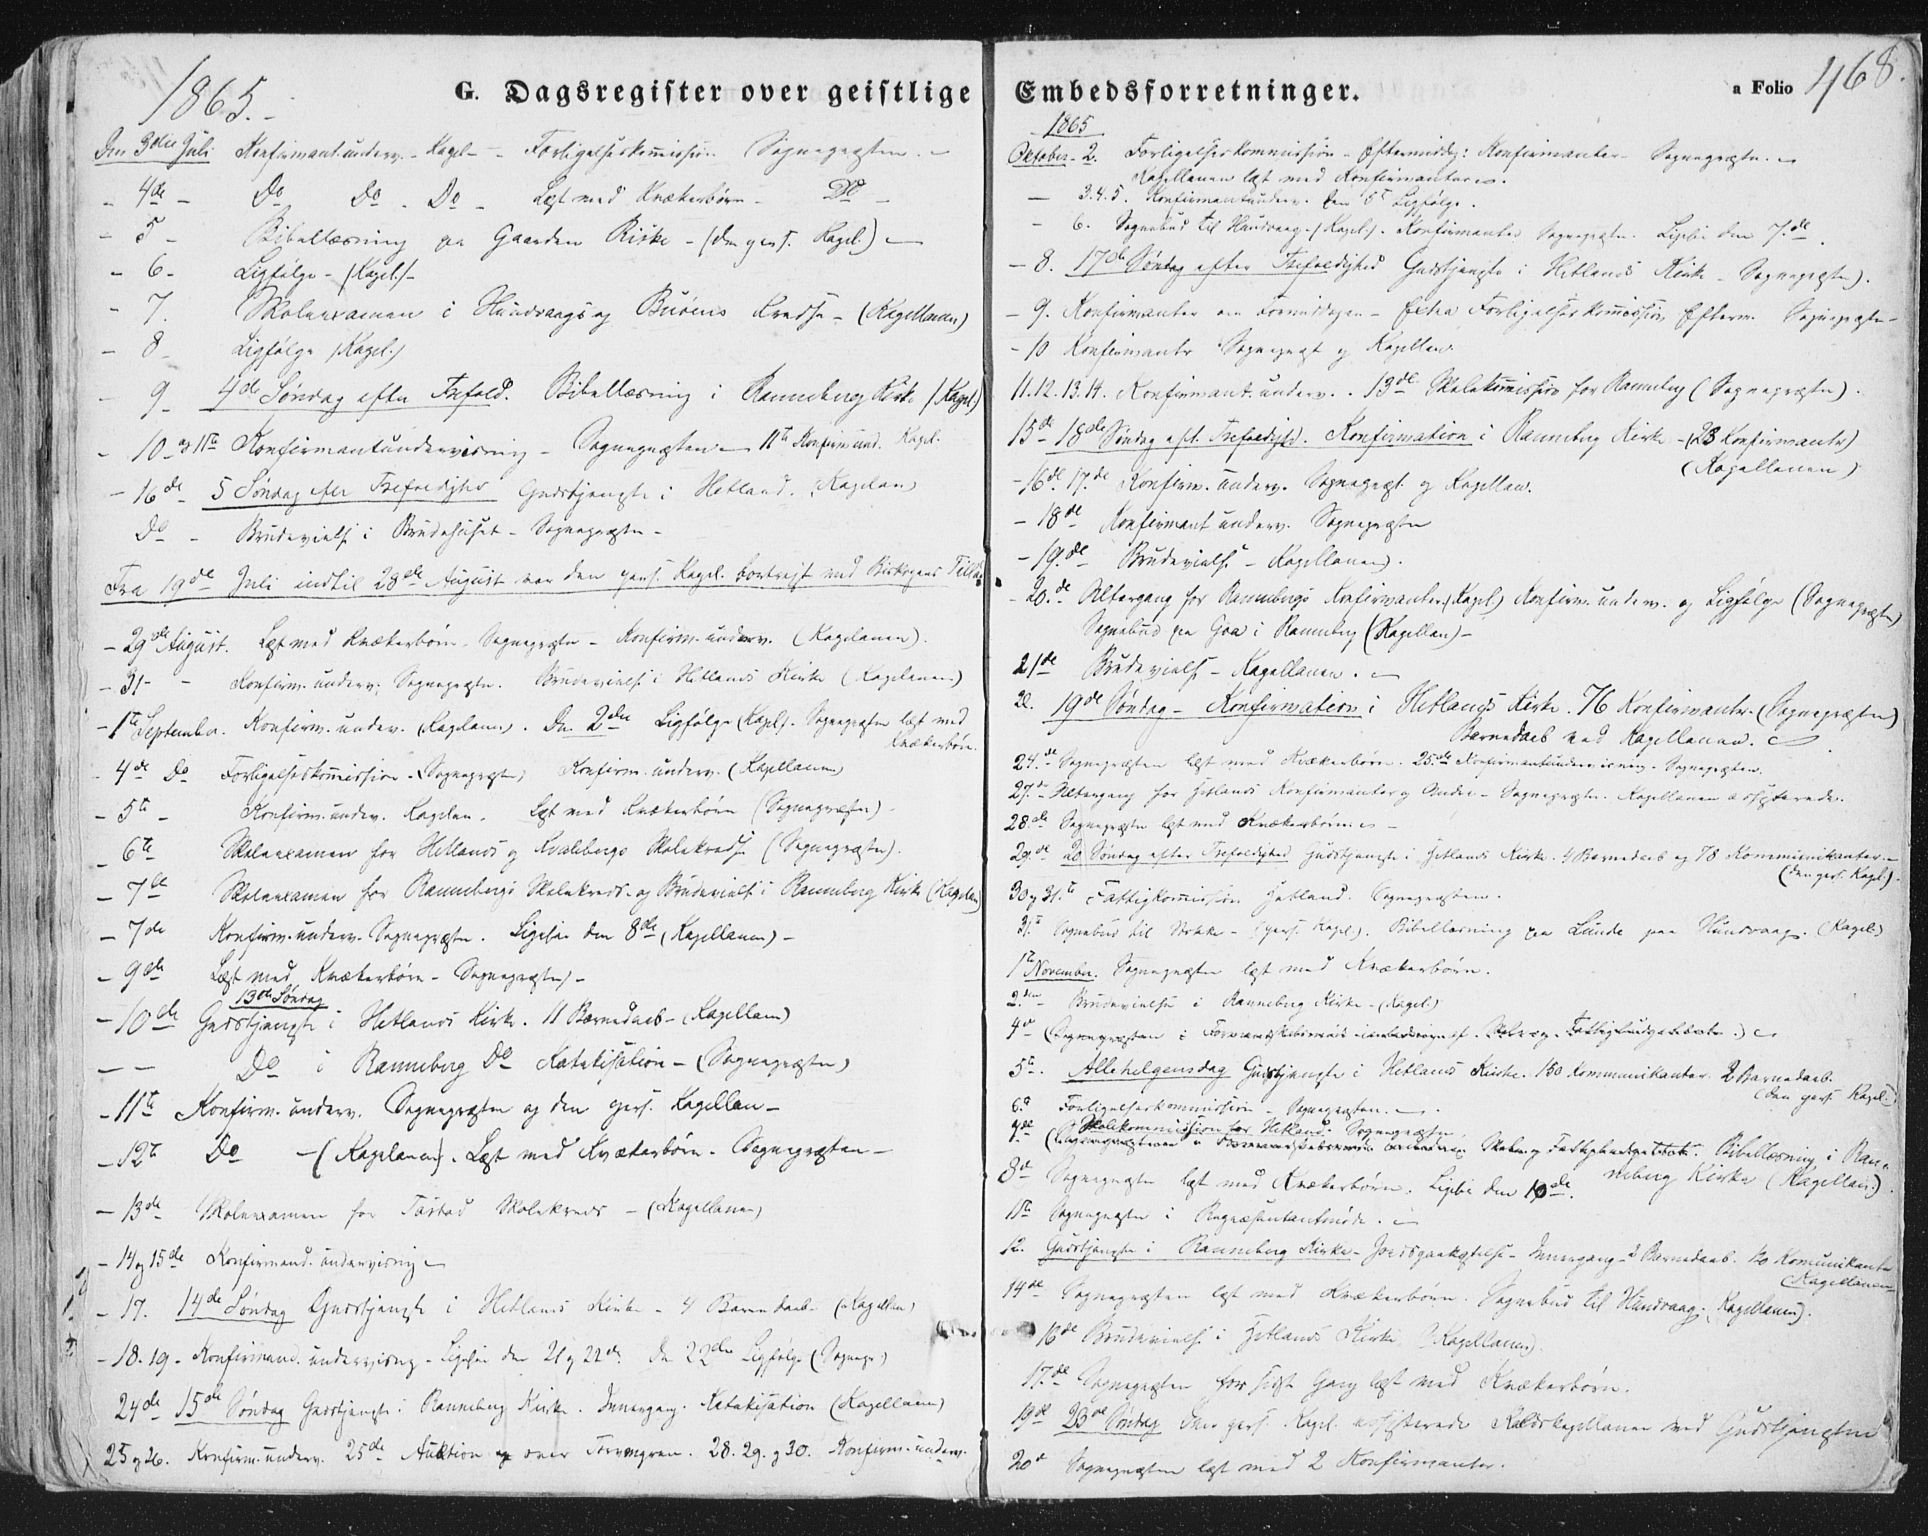 1865.
G. Dagsregister over geistlige
Den 3die Juli Konfirmant.underv. - Kapel. - Forligelseskommission Sognepræsten. -
- 4de - Do Do - Do - Læst med Kvækerbørn - Do -
- 5 - Bibellæsning paa Gaarden Riske - (den pers. Kapel.) -
- 6 - Ligfølge - (Kapel.) -
- 7. Skoleexamen i Hundvaags og Buøens Kredse - (Kapellanen)
- 8 - Ligfølge (Kapel.)
- 9 - 4de Søndag efter Trefold. Bibellæsning i Randeberg Kirke (Kapel.)
- 10 og 11te Konfirmantundervisning - Sognepræsten - 11te Konfirm.und. Kapel.
- 16de 5 Søndag efter Trefoldighed Gudstjeneste i Hetland. (Kapelan)
Do - Brudevielse i Brudehuset - Sognepræsten -
Fra 19de Juli indtil 28de August var den pers. Kapel. bortrejst med Biskopens Tillad.
- 29de August. Læst med Kvækerbørn - Sognepræsten - Konfirm.underv. (Kapelanen).
- 31 - - Konfirm.underv. Sognepræsten. Brudevielse i Hetlands Kirke (Kapelanen)
- 1te September. Konfirm.underv. (Kapelanen). Den 2den Ligfølge (Kapel.). Sognepræsten læst med
Kvækerbørn.
- 4de Do Forligelseskommission - (Sognepræsten) Konfirm.underv. (Kapellanen)
- 5te - Konfirm.underv. Kapelan. Læst med Kvækerbørn (Sognepræsten) -
- 6te Skoleexamen for Hetlands og Kvalebergs Skolekredse (Sognepræsten).
- 7de Skoleexamen for Randebergs Skolekreds og Brudevielse i Randeberg Kirke (Kapelan)
- 7de Konfirm.underv. Sognepræsten. Ligesaa den 8de (Kapellanen) -
- 9de Læst med Kvækerbørn - Sognepræsten) -
13de Søndag
- 10de Gudstjeneste i Hetlands Kirke. 11 Barnedaab - (Kapellan)
- - Do i Randeberg Do Katekisation - (Sognepræsten)
- 11te Konfirm.underv. Sognepræsten og den pers. Kapellan -
- 12te Do - (Kapelanen). Læst med Kvækerbørn - Sognepræsten -
- 13de Skoleexamen for Tasted Skolekreds - (Kapellanen)
- 14 og 15de Konfirmand.undervisning -
- 17. 14de Søndag Gudstjeneste i Hetlands Kirke - 4 Barnedaab - (Kapellan)
- 18. 19 - Konfirmand.undervisning - Ligesaa den 21 og 22de. Den 22de Ligfølge (Sognepr.)
24de 15de Søndag Gudstjeneste i Randeberg Kirke. Innergang. Katekisation (Kapellanen)
25 og 26. Konfirm.underv. 25de Auktion over Torvmyren. 28. 29. og 30. Konfirm.underv.
Embedsforretninger.
a Folio 468.
1865
Oktober - 2. Forligelseskommission - Eftermiddag: Konfirmanter - Sognepræsten. -
Kapellanen læst med Konfirmanterne.
- 3. 4. 5. Konfirmantunderv. den 5te Ligfølge.
- 6. Sognebud til Hundvaag (Kapel.). Konfirmanter Sognepræsten. Ligesaa den 7de.
- 8. 17de Søndag efter Trefoldighed Gudstjeneste i Hetlands Kirke - Sognepræsten).
- 9. Konfirmanter om Formiddagen - Extra Forligelseskommission Efterm. Sognepræsten -
- 10 Konfirmanter Sognepræst og Kapellan
11. 12. 13. 14. Konfirmant.underv. - 13de Skolekommission for Randeberg (Sognepræsten).
15de 18de Søndag eft. Trefoldighd. Konfirmation i Randeberg Kirke - (23 Konfirmanter)
(Kapellanen)
- 16de. 17de Konfirm.underv. Sognepræst og Kapellan.
- 18de Konfirmant underv. Sognepræsten
- 19de Brudevielse - Kapellanen).
- 20de Altergang for Randebergs Konfirmanter (Kapel.) Konfirm.underv. og Ligfølge (Sognepræsten)
Sognebud paa Goa i Randeberg (Kapellan) -
21de Brudevielse - Kapellanen. -
22. 19de Søndag - Konfirmation i Hetlands Kirke. 76 Konfirmanter. (Sognepræsten)
Barnedaab ved Kapellanen.
24de Sognepræsten læst med Kvækerbørn. 25de Konfirmantundervisning. Sognepræsten.
27de Altergang for Hetlands Konfirmanter og Andre - Sognepræsten. Kapellanen assisterede.
28de Sognepræsten læst med Kvækerbørnene -
29de 20 Søndag efter Trefoldighed Gudstjeneste i Hetlands Kirke. 4 Barnedaab og 78 Kommunikanter. -
(den pers. Kapel.).
30 og 31te Fattigkommission Hetland. Sognepræsten.
31te Sognebud til Stokke - (pers. Kapel.). Bibellæsning paa Lunde paa Hundvaag. (Kapel.)
1te November. Sognepræsten læst med Kvækerbørn.
2den Brudevielse i Randeberg Kirke - (Kapel.)
4de (Sognepræsten i Formandskabsmøde
5te. Allehelgensdag Gudstjeneste i Hetlands Kirke. 150 Kommunikanter. 2 Barnedaab.
(den pers. Kapel.)
6te Forligelseskommission - Sognepræsten. -
Skolekommission for Hetland. Sognepræsten
7de Bibellæsning i Ran-
neberg Kirke (Kapellan.).
8de Sognepræsten læst med Kvækerbørn. Ligesaa den 10de.
11te Sognepræsten i Repræsentantmøde. -
12. Gudstjeneste i Randeberg Kirke - Jordspaakastelse - Innergang - 2 Barnedaab. Komunikanter
(Kapellanen
14de Sognepræsten læst med Kvækerbørn. Sognebud til Hundvaag. Kapellanen).
16de Brudevielse i Hetlands Kirke (Kapellanen).
17de Sognepræsten for sidste Gang læst med Kvækerbørn.
19de 23de Søndag Den pers. Kapel. assisterede Kapellanen ved Gudstjenesten
20de Sognepræsten læst med 2 Konfirmanter.